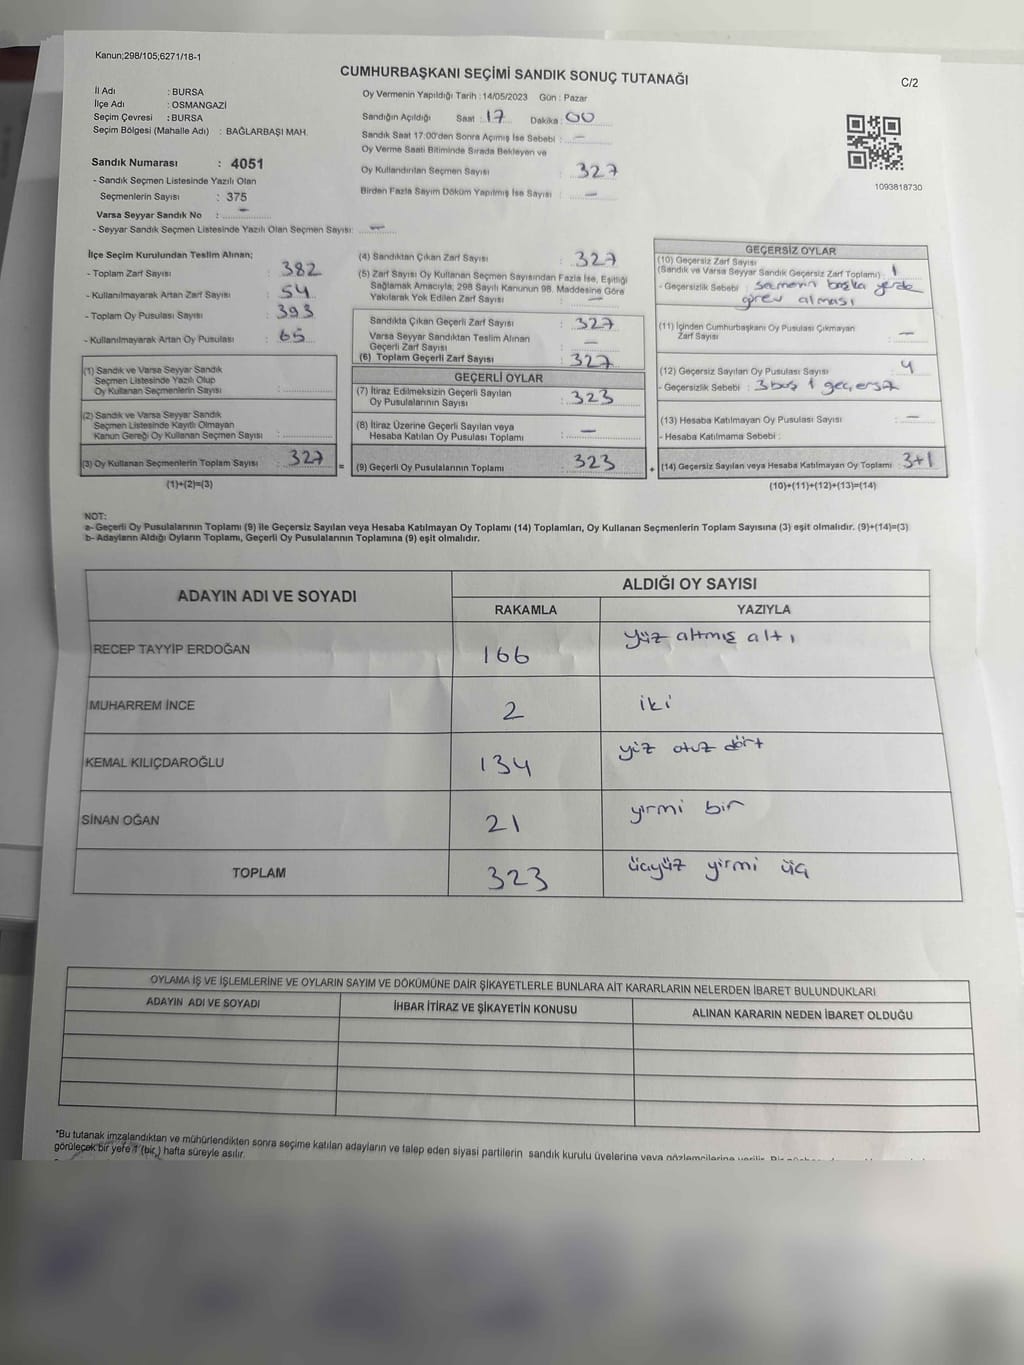 Kanun;298/105;6271/18-1
CUMHURBAŞKANI SEÇİMİ SANDIK SONUÇ TUTANAĞI
C/2
İl Adı : BURSA
İlçe Adı : OSMANGAZİ
Seçim Çevresi : BURSA
Seçim Bölgesi (Mahalle Adı) : BAĞLARBAŞI MAH.
Sandık Numarası : 4051
- Sandık Seçmen Listesinde Yazılı Olan
Seçmenlerin Sayısı : 375
Varsa Seyyar Sandık No : —
- Seyyar Sandık Seçmen Listesinde Yazılı Olan Seçmen Sayısı: —
Oy Vermenin Yapıldığı Tarih : 14/05/2023 Gün : Pazar
Sandığın Açıldığı Saat : 17 Dakika : 00
Sandık Saat 17:00'den Sonra Açımış İse Sebebi : —
Oy Verme Saati Bitiminde Sırada Bekleyen ve
Oy Kullandırılan Seçmen Sayısı : 327
Birden Fazla Sayım Döküm Yapılmış İse Sayısı : —
1093818730
İlçe Seçim Kurulundan Teslim Alınan;
- Toplam Zarf Sayısı : 382
- Kullanılmayarak Artan Zarf Sayısı : 54
- Toplam Oy Pusulası Sayısı : 393
- Kullanılmayarak Artan Oy Pusulası : 65
(1) Sandık ve Varsa Seyyar Sandık
Seçmen Listesinde Yazılı Olup
Oy Kullanan Seçmenlerin Sayısı :
(2) Sandık ve Varsa Seyyar Sandık
Seçmen Listesinde Kayıtlı Olmayan
Kanun Gereği Oy Kullanan Seçmen Sayısı :
(3) Oy Kullanan Seçmenlerin Toplam Sayısı : 327
(1)+(2)=(3)
(4) Sandıktan Çıkan Zarf Sayısı : 327
(5) Zarf Sayısı Oy Kullanan Seçmen Sayısından Fazla İse, Eşitliği
Sağlamak Amacıyla; 298 Sayılı Kanunun 98. Maddesine Göre
Yakılarak Yok Edilen Zarf Sayısı : —
Sandıkta Çıkan Geçerli Zarf Sayısı : 327
Varsa Seyyar Sandıktan Teslim Alınan
Geçerli Zarf Sayısı : —
(6) Toplam Geçerli Zarf Sayısı : 327
GEÇERLİ OYLAR
(7) İtiraz Edilmeksizin Geçerli Sayılan
Oy Pusulalarının Sayısı : 323
(8) İtiraz Üzerine Geçerli Sayılan veya
Hesaba Katılan Oy Pusulası Toplamı : —
= (9) Geçerli Oy Pusulalarının Toplamı : 323
GEÇERSİZ OYLAR
(10) Geçersiz Zarf Sayısı
(Sandık ve Varsa Seyyar Sandık Geçersiz Zarf Toplamı) : 1
- Geçersizlik Sebebi : seçmenin başka yerde
görev alması
(11) İçinden Cumhurbaşkanı Oy Pusulası Çıkmayan
Zarf Sayısı : —
(12) Geçersiz Sayılan Oy Pusulası Sayısı : 4
- Geçersizlik Sebebi : 3 boş 1 geçersiz
(13) Hesaba Katılmayan Oy Pusulası Sayısı : —
- Hesaba Katılmama Sebebi :
+ (14) Geçersiz Sayılan veya Hesaba Katılmayan Oy Toplamı : 3+1
(10)+(11)+(12)+(13)=(14)
NOT:
a- Geçerli Oy Pusulalarının Toplamı (9) ile Geçersiz Sayılan veya Hesaba Katılmayan Oy Toplamı (14) Toplamları, Oy Kullanan Seçmenlerin Toplam Sayısına (3) eşit olmalıdır. (9)+(14)=(3)
b- Adayların Aldığı Oyların Toplamı, Geçerli Oy Pusulalarının Toplamına (9) eşit olmalıdır.
ADAYIN ADI VE SOYADI
ALDIĞI OY SAYISI
RAKAMLA YAZIYLA
RECEP TAYYİP ERDOĞAN 166 yüz altmış altı
MUHARREM İNCE 2 iki
KEMAL KILIÇDAROĞLU 134 yüz otuz dört
SİNAN OĞAN 21 yirmi bir
TOPLAM 323 üçyüz yirmi üç
OYLAMA İŞ VE İŞLEMLERİNE VE OYLARIN SAYIM VE DÖKÜMÜNE DAİR ŞİKAYETLERLE BUNLARA AİT KARARLARIN NELERDEN İBARET BULUNDUKLARI
ADAYIN ADI VE SOYADI İHBAR İTİRAZ VE ŞİKAYETİN KONUSU ALINAN KARARIN NEDEN İBARET OLDUĞU
*Bu tutanak imzalandıktan ve mühürlendikten sonra seçime katılan adayların ve talep eden siyasi partilerin sandık kurulu üyelerine veya gözlemcilerine verilir.
görülecek bir yere 1 (bir) hafta süreyle asılır.